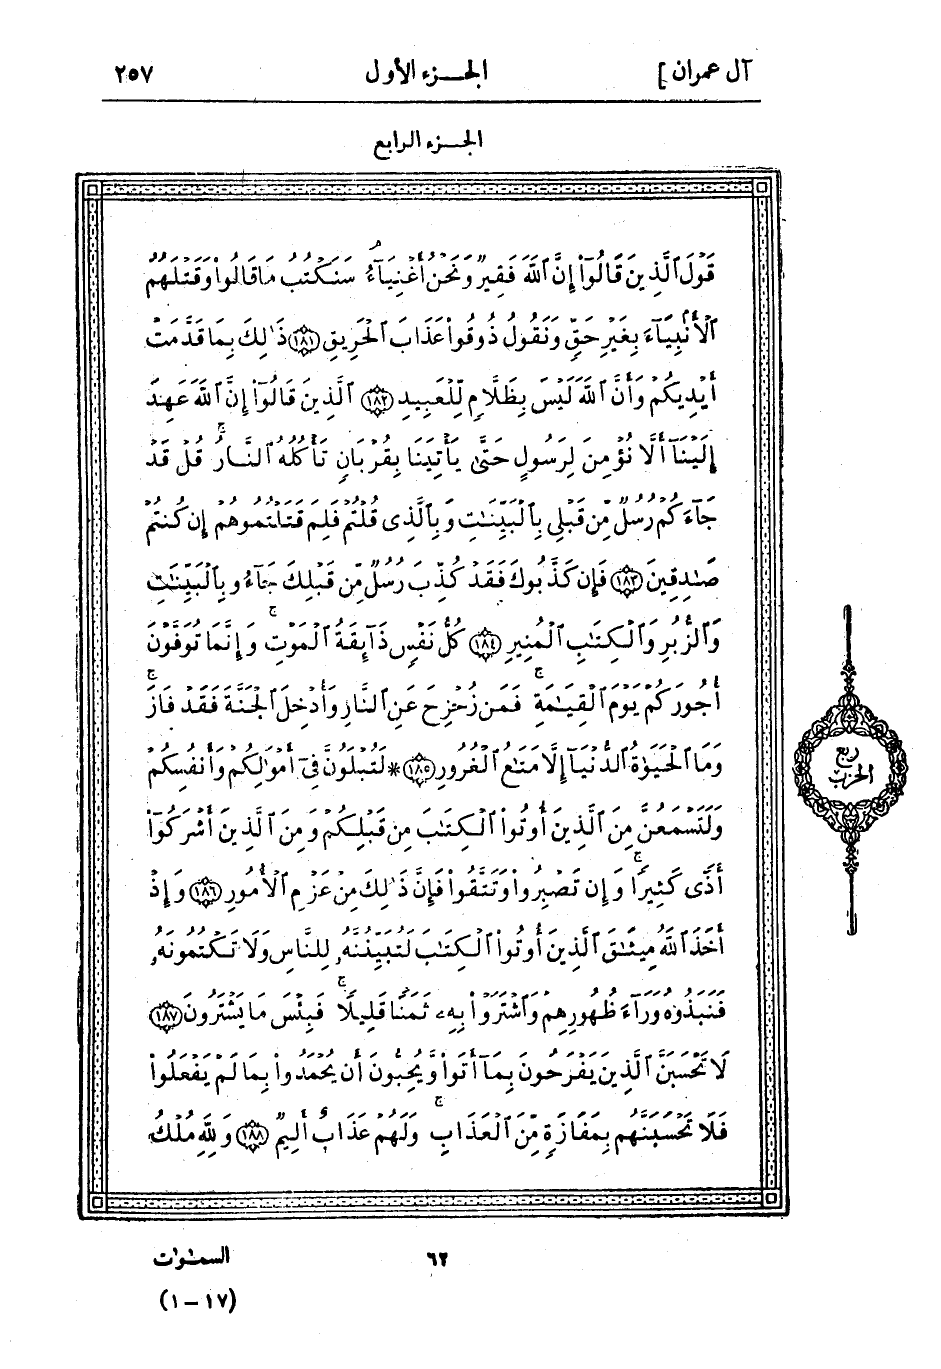 آل عمران] الجـزء الأول ٢٥٧
الجـزء الرابع
قَوْلَ ٱلَّذِينَ قَالُوٓاْ إِنَّ ٱللَّهَ فَقِيرٌ وَنَحْنُ أَغْنِيَآءُ ۘ سَنَكْتُبُ مَا قَالُواْ وَقَتْلَهُمُ
ٱلْأَنۢبِيَآءَ بِغَيْرِ حَقٍّ وَنَقُولُ ذُوقُواْ عَذَابَ ٱلْحَرِيقِ ١٨١ ذَٰلِكَ بِمَا قَدَّمَتْ
أَيْدِيكُمْ وَأَنَّ ٱللَّهَ لَيْسَ بِظَلَّامٍ لِّلْعَبِيدِ ١٨٢ ٱلَّذِينَ قَالُوٓاْ إِنَّ ٱللَّهَ عَهِدَ
إِلَيْنَآ أَلَّا نُؤْمِنَ لِرَسُولٍ حَتَّىٰ يَأْتِيَنَا بِقُرْبَانٍ تَأْكُلُهُ ٱلنَّارُ ۗ قُلْ قَدْ
جَآءَكُمْ رُسُلٌ مِّن قَبْلِى بِٱلْبَيِّنَٰتِ وَبِٱلَّذِى قُلْتُمْ فَلِمَ قَتَلْتُمُوهُمْ إِن كُنتُمْ
صَٰدِقِينَ ١٨٣ فَإِن كَذَّبُوكَ فَقَدْ كُذِّبَ رُسُلٌ مِّن قَبْلِكَ جَآءُو بِٱلْبَيِّنَٰتِ
وَٱلزُّبُرِ وَٱلْكِتَٰبِ ٱلْمُنِيرِ ١٨٤ كُلُّ نَفْسٍ ذَآئِقَةُ ٱلْمَوْتِ ۚ وَإِنَّمَا تُوَفَّوْنَ
أُجُورَكُمْ يَوْمَ ٱلْقِيَٰمَةِ ۚ فَمَن زُحْزِحَ عَنِ ٱلنَّارِ وَأُدْخِلَ ٱلْجَنَّةَ فَقَدْ فَازَ ۗ
وَمَا ٱلْحَيَوٰةُ ٱلدُّنْيَآ إِلَّا مَتَٰعُ ٱلْغُرُورِ ١٨٥ * لَتُبْلَوُنَّ فِىٓ أَمْوَٰلِكُمْ وَأَنفُسِكُمْ
وَلَتَسْمَعُنَّ مِنَ ٱلَّذِينَ أُوتُواْ ٱلْكِتَٰبَ مِن قَبْلِكُمْ وَمِنَ ٱلَّذِينَ أَشْرَكُوٓاْ
أَذًى كَثِيرًا ۚ وَإِن تَصْبِرُواْ وَتَتَّقُواْ فَإِنَّ ذَٰلِكَ مِنْ عَزْمِ ٱلْأُمُورِ ١٨٦ وَإِذْ
أَخَذَ ٱللَّهُ مِيثَٰقَ ٱلَّذِينَ أُوتُواْ ٱلْكِتَٰبَ لَتُبَيِّنُنَّهُۥ لِلنَّاسِ وَلَا تَكْتُمُونَهُۥ
فَنَبَذُوهُ وَرَآءَ ظُهُورِهِمْ وَٱشْتَرَوْاْ بِهِۦ ثَمَنًا قَلِيلًا ۖ فَبِئْسَ مَا يَشْتَرُونَ ١٨٧
لَا تَحْسَبَنَّ ٱلَّذِينَ يَفْرَحُونَ بِمَآ أَتَواْ وَّيُحِبُّونَ أَن يُحْمَدُواْ بِمَا لَمْ يَفْعَلُواْ
فَلَا تَحْسَبَنَّهُم بِمَفَازَةٍ مِّنَ ٱلْعَذَابِ ۖ وَلَهُمْ عَذَابٌ أَلِيمٌ ١٨٨ وَلِلَّهِ مُلْكُ
ربع
الحزب
٦٢ السمٰوٰت
(١٧ – ١)